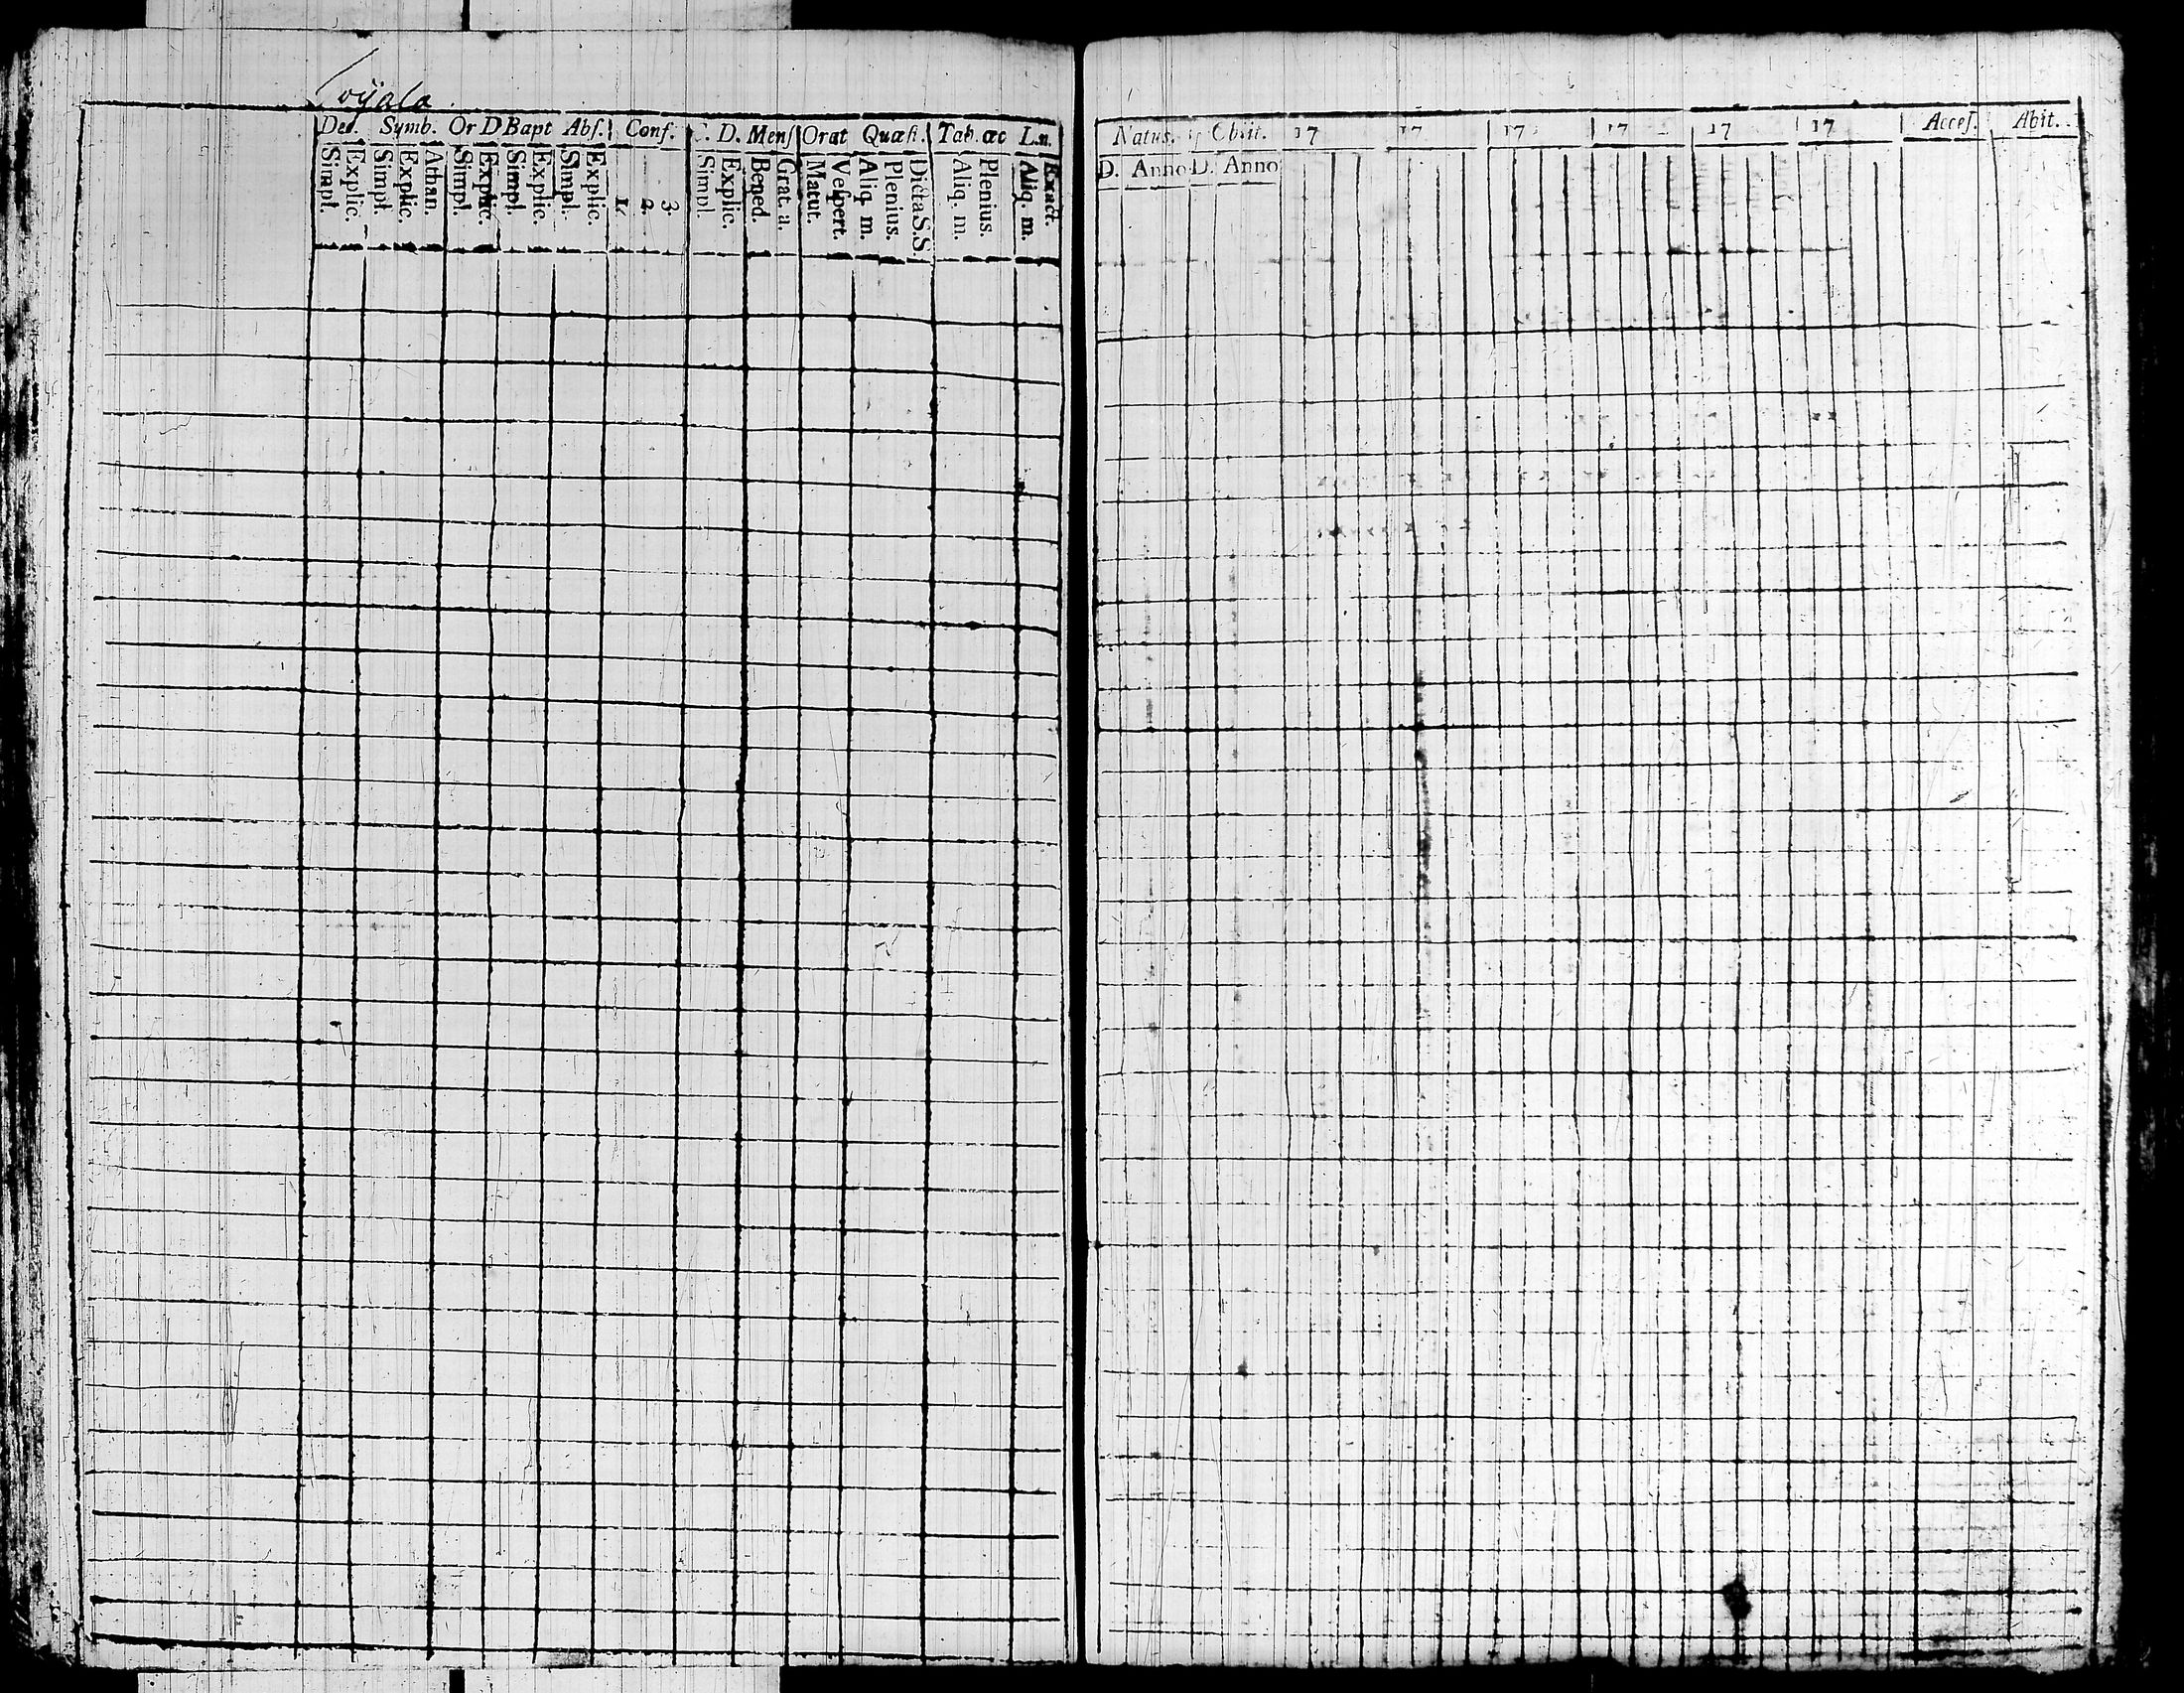 Toijala
Dec. Symb. Or D Bapt Abſ. Conf. C. D. Menſ Orat Quæſt. Tab. œc Ln.
Simpl. Explic. Simpl. Explic. Athan. Simpl. Explic. Simpl. Explic. Simpl. Explic. 1. 2. 3. Simpl. Explic. Bened. Grat. a. Matut. Veſpert. Aliq. m. Plenius. Dicta S.S. Aliq. m. Plenius. Aliq. m. Exact.
Natus. Obiit. 17 17 17 17 17 17 Acceſ. Abit.
D. Anno D. Anno